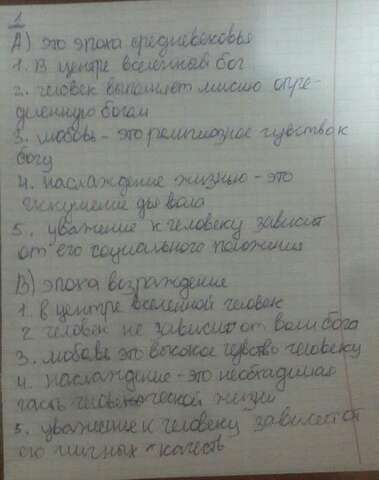 1
А) это эпоха средневековья
1. В центре вселенной бог
2. человек выполняет миссию опре-
деленную богом
3. любовь - это религиозное чувство к
богу
4. наслаждение жизнью - это
искушение дьявола
5. уважение к человеку зависит
от его социального положения
В) эпоха возраждение
1. в центре вселенной человек
2 человек не зависит от воли бога
3. любовь это высокое чувство человеку
4. наслаждение - это необхадимая
часть человеческой жизни
5. уважение к человеку
его личных качеств